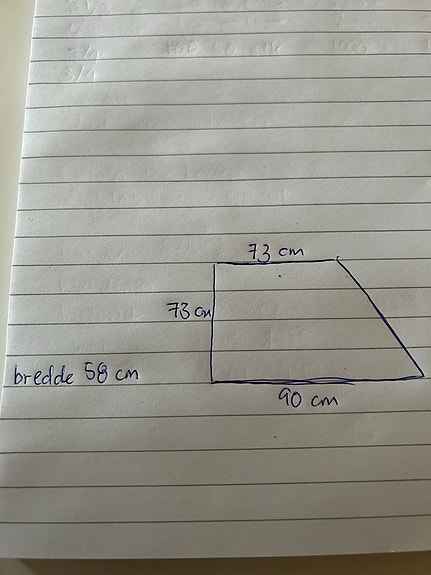 73 cm
73 cm
bredde 58 cm
90 cm